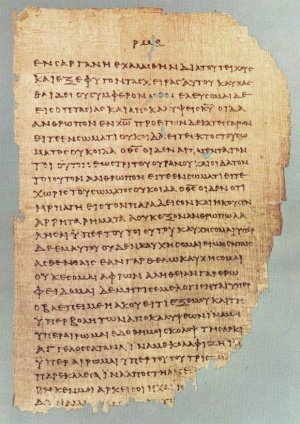 ΡΜΕ
ΕΝ ϹΑΡΓΑΝΗ ΕΧΑΛΑϹΘΗΝ ΔΙΑ ΤΟΥ ΤΕΙΧΟΥϹ
ΚΑΙ ΕΞΕΦΥΓΟΝ ΤΑϹ ΧΕΙΡΑϹ ΑΥΤΟΥ ΚΑΥΧΑϹ
ΘΑΙ ΔΕΙ ΟΥ ϹΥΜΦΕΡΟΝ ΜΕΝ ΕΛΕΥϹΟΜΑΙ ΔΕ
ΕΙϹ ΟΠΤΑϹΙΑϹ ΚΑΙ ΚΥ ΟΙΔΑ
ΑΝΘΡΩΠΟΝ ΕΝ ΧΡΩ ΠΡΟ ΕΤΩΝ ΔΕΚΑΤΕϹϹΑΡΩΝ
ΕΙΤΕ ΕΝ ϹΩΜΑΤΙ ΟΥΚ ΟΙΔΑ ΕΙΤΕ ΕΚΤΟϹ ΤΟΥ ϹΩ
ΜΑΤΟϹ ΟΥΚ ΟΙΔΑ Ο ΘϹ ΟΙΔΕΝ ΑΡΠΑΓΕΝΤΑ ΤΟΝ
ΤΟΙΟΥΤΟΝ ΕΩϹ ΤΡΙΤΟΥ ΟΥΡΑΝΟΥ ΚΑΙ ΟΙΔΑ ΤΟΝ
ΤΟΙΟΥΤΟΝ ΑΝΘΡΩΠΟΝ ΕΙΤΕ ΕΝ ϹΩΜΑΤΙ ΕΙΤΕ
ΧΩΡΙϹ ΤΟΥ ϹΩΜΑΤΟϹ ΟΥΚ ΟΙΔΑ Ο ΘϹ ΟΙΔΕΝ ΟΤΙ
ΗΡΠΑΓΗ ΕΙϹ ΤΟΝ ΠΑΡΑΔΕΙϹΟΝ ΚΑΙ ΗΚΟΥϹΕΝ
ΑΡΡΗΤΑ ΡΗΜΑΤΑ Α ΟΥΚ ΕΞΟΝ ΑΝΘΡΩΠΩ ΛΑ
ΛΗϹΑΙ ΥΠΕΡ ΤΟΥ ΤΟΙΟΥΤΟΥ ΚΑΥΧΗϹΟΜΑΙ ΥΠΕΡ
ΔΕ ΕΜΑΥΤΟΥ ΟΥΔΕΝ ΚΑΥΧΗϹΟΜΑΙ ΕΙ ΜΗ ΕΝ ΤΑΙϹ
ΑϹΘΕΝΕΙΑΙϹ ΕΑΝ ΓΑΡ ΘΕΛΩ ΚΑΥΧΗϹΟΜΑΙ
ΟΥΚ ΕϹΟΜΑΙ ΑΦΡΩΝ ΑΛΗΘΕΙΑΝ ΓΑΡ ΕΡΩ
ΦΕΙΔΟΜΑΙ ΔΕ ΜΗ ΤΙϹ ΕΜΕ ΛΟΓΙϹΗΤΑΙ ΥΠΕΡ
Ο ΒΛΕΠΕΙ ΜΕ Η ΑΚΟΥΕΙ ΤΙ ΕΞ ΕΜΟΥ ΚΑΙ ΤΗ
ΥΠΕΡΒΟΛΗ ΤΩΝ ΑΠΟΚΑΛΥΨΕΩΝ ΙΝΑ ΜΗ
ΥΠΕΡΑΙΡΩΜΑΙ ΕΔΟΘΗ ΜΟΙ ϹΚΟΛΟΨ ΤΗ ϹΑΡΚΙ
ΑΓΓΕΛΟϹ ϹΑΤΑΝΑ ΙΝΑ ΜΕ ΚΟΛΑΦΙΖΗ ΙΝΑ ΜΗ
ΥΠΕΡΑΙΡΩΜΑΙ ΥΠΕΡ ΤΟΥΤΟΥ ΤΡΙϹ ΤΟΝ
ΠΑΡΕΚΑΛΕϹΑ ΙΝΑ ΑΠΟϹΤΗ ΑΠ
ΕΙΡΗΚΕΝ ΜΟΙ ΑΡΚΕΙ ϹΟΙ Η ΧΑΡΙϹ